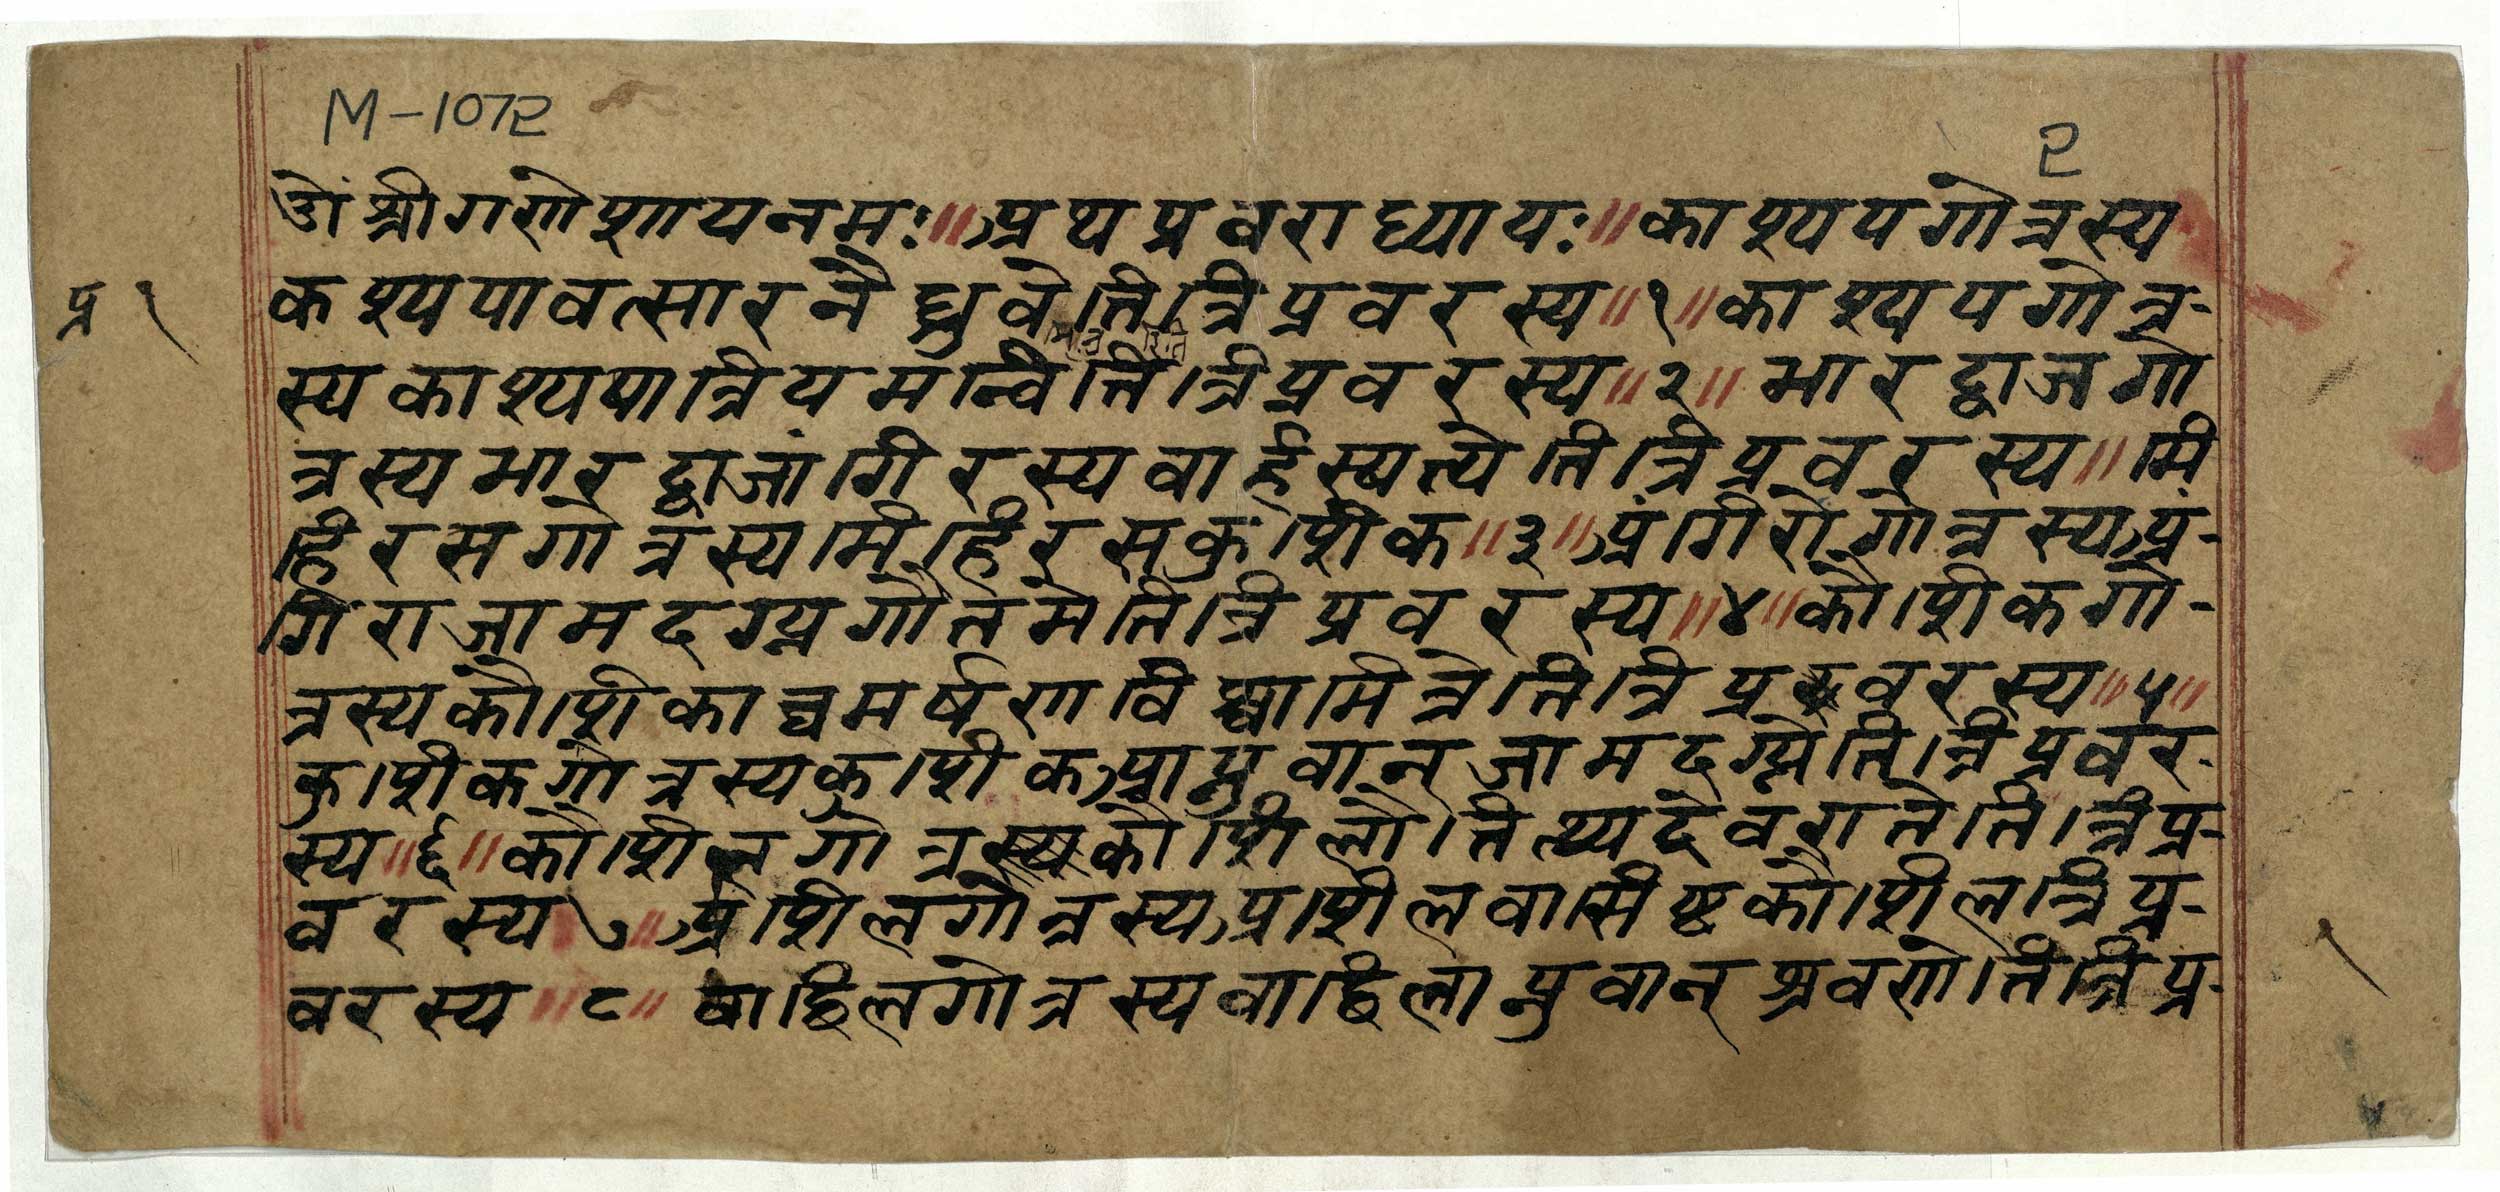 M-1072
2
ओं श्रीगणेशायनमः॥अथप्रवराध्यायः॥काश्यपगोत्रस्य
प्र १
कश्यपावत्सारनैध्रुवेतित्रिप्रवरस्य॥१॥काश्यपगोत्र-
स्यकाश्यपात्रियमन्वितित्रिप्रवरस्य॥२॥भारद्वाजगो
त्रस्यभारद्वाजांगिरस्यवार्हस्पत्येतित्रिप्रवरस्य॥मि
हिरसगोत्रस्यमिहिरसकुशिक॥३॥अंगिरोगोत्रस्यअं-
गिराजामदग्न्यगौतमेतित्रिप्रवरस्य॥४॥कौशिकगो-
त्रस्यकौशिकाघमर्षणविश्वामित्रेतित्रिप्रवरस्य॥५॥
कुशिकगोत्रस्यकुशिकआप्नुवानजामदग्न्येतित्रिप्रवर-
स्य॥६॥कौशिलगोत्रस्यकौशिलौतित्थ्यदेवरातेतित्रिप्र-
वरस्य७॥अशिलगोत्रस्यअशिलवासिष्टकौशिलत्रिप्र-
वरस्य॥८॥वाछिलगोत्रस्यवाछिलाप्नुवानश्रवणेतित्रिप्र-
१